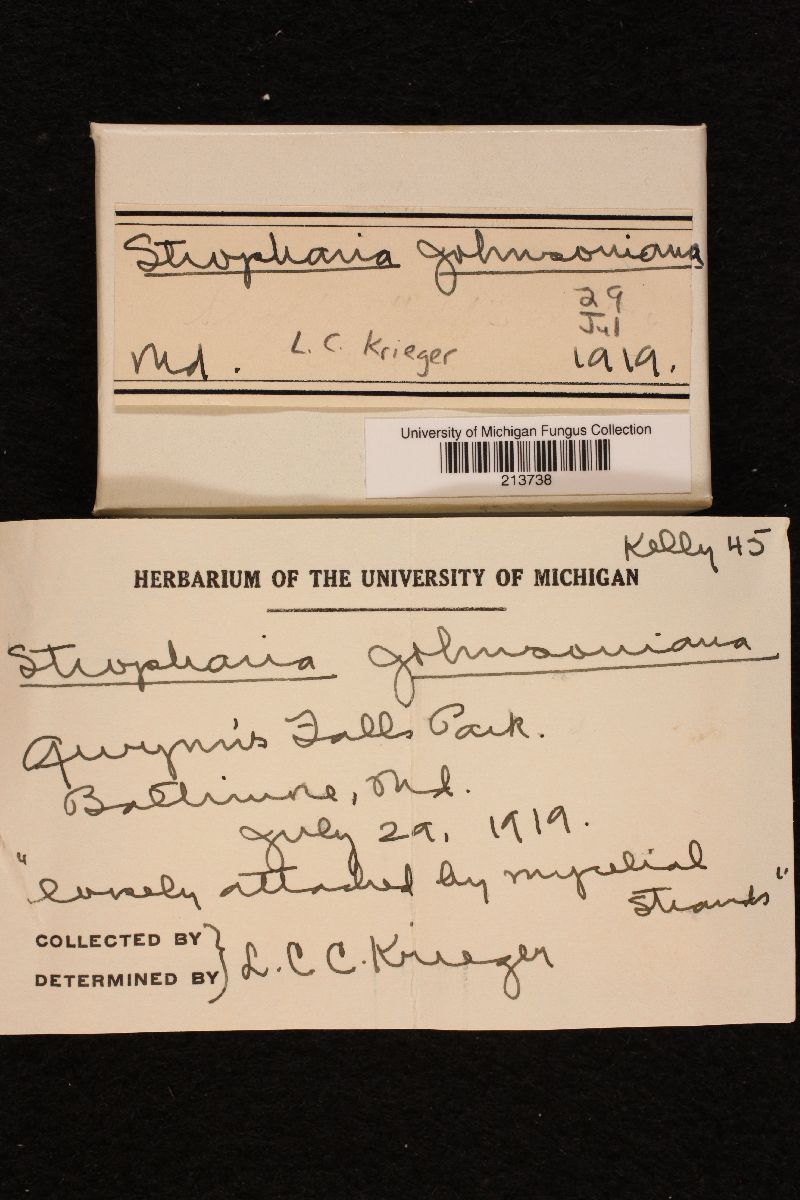 Stropharia Johnsoniana
29
Jul
Md. L. C. Krieger 1919.
University of Michigan Fungus Collection
213738
Kelly 45
HERBARIUM OF THE UNIVERSITY OF MICHIGAN
Stropharia Johnsoniana
Gwynn's Falls Park.
Baltimore, Md.
July 29, 1919.
"loosely attached by mycelial
strands"
COLLECTED BY
DETERMINED BY } L. C. C. Krieger